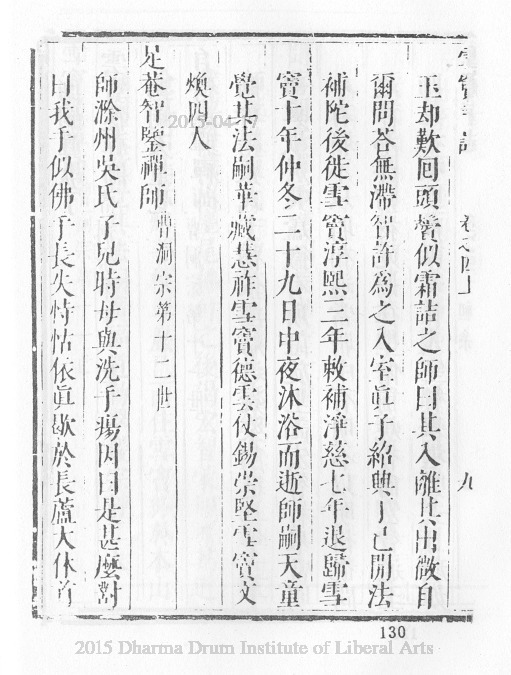 雪竇寺誌 卷之四上 九
玉却歎回頭鬢似霜詰之師曰其入離其出微自
爾問荅無滯智許為之入室眞子紹興丁巳開法
補陀後徙雪竇淳熙三年敕補淨慈七年退歸雪
竇十年仲冬二十九日中夜沐浴而逝師嗣天童
覺其法嗣華藏慧祚雪竇德雲仗錫崇堅雪竇文
煥四人
足菴智鑒禪師 曹洞宗第十二世
師滁州吳氏子兒時母與洗手瘍因曰是甚麼對
曰我手似佛手長失恃怙依眞歇於長蘆大休首
2015-04-17
130
2015 Dharma Drum Institute of Liberal Arts